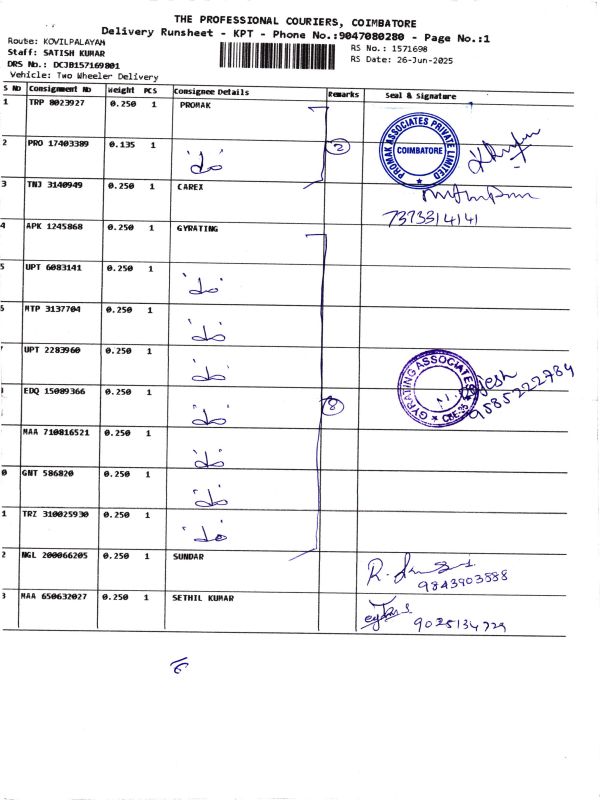 THE PROFESSIONAL COURIERS, COIMBATORE
Delivery Runsheet - KPT - Phone No.:9047080280 - Page No.:1
Route: KOVILPALAYAM
RS No.: 1571698
Staff: SATISH KUMAR
RS Date: 26-Jun-2025
DRS No.: DCJB157169801
Vehicle: Two Wheeler Delivery
S No Consignment No Weight PCS Consignee Details Remarks Seal & Signature
1 TRP 8023927 0.250 1 PROMAK
PROMAK ASSOCIATES PRIVATE LIMITED
COIMBATORE
2 PRO 17403389 0.135 1 2
3 TNJ 3140949 0.250 1 CAREX
7373314141
4 APK 1245868 0.250 1 GYRATING
5 UPT 6083141 0.250 1
6 MTP 3137704 0.250 1
UPT 2283960 0.250 1
GYRATING ASSOCIATES
CBE-35
9585222784
EDQ 15089366 0.250 1 8
MAA 710816521 0.250 1
0 GNT 586820 0.250 1
1 TRZ 310025930 0.250 1
2 NGL 200066205 0.250 1 SUNDAR
9843903888
3 MAA 650632027 0.250 1 SETHIL KUMAR
9025134729